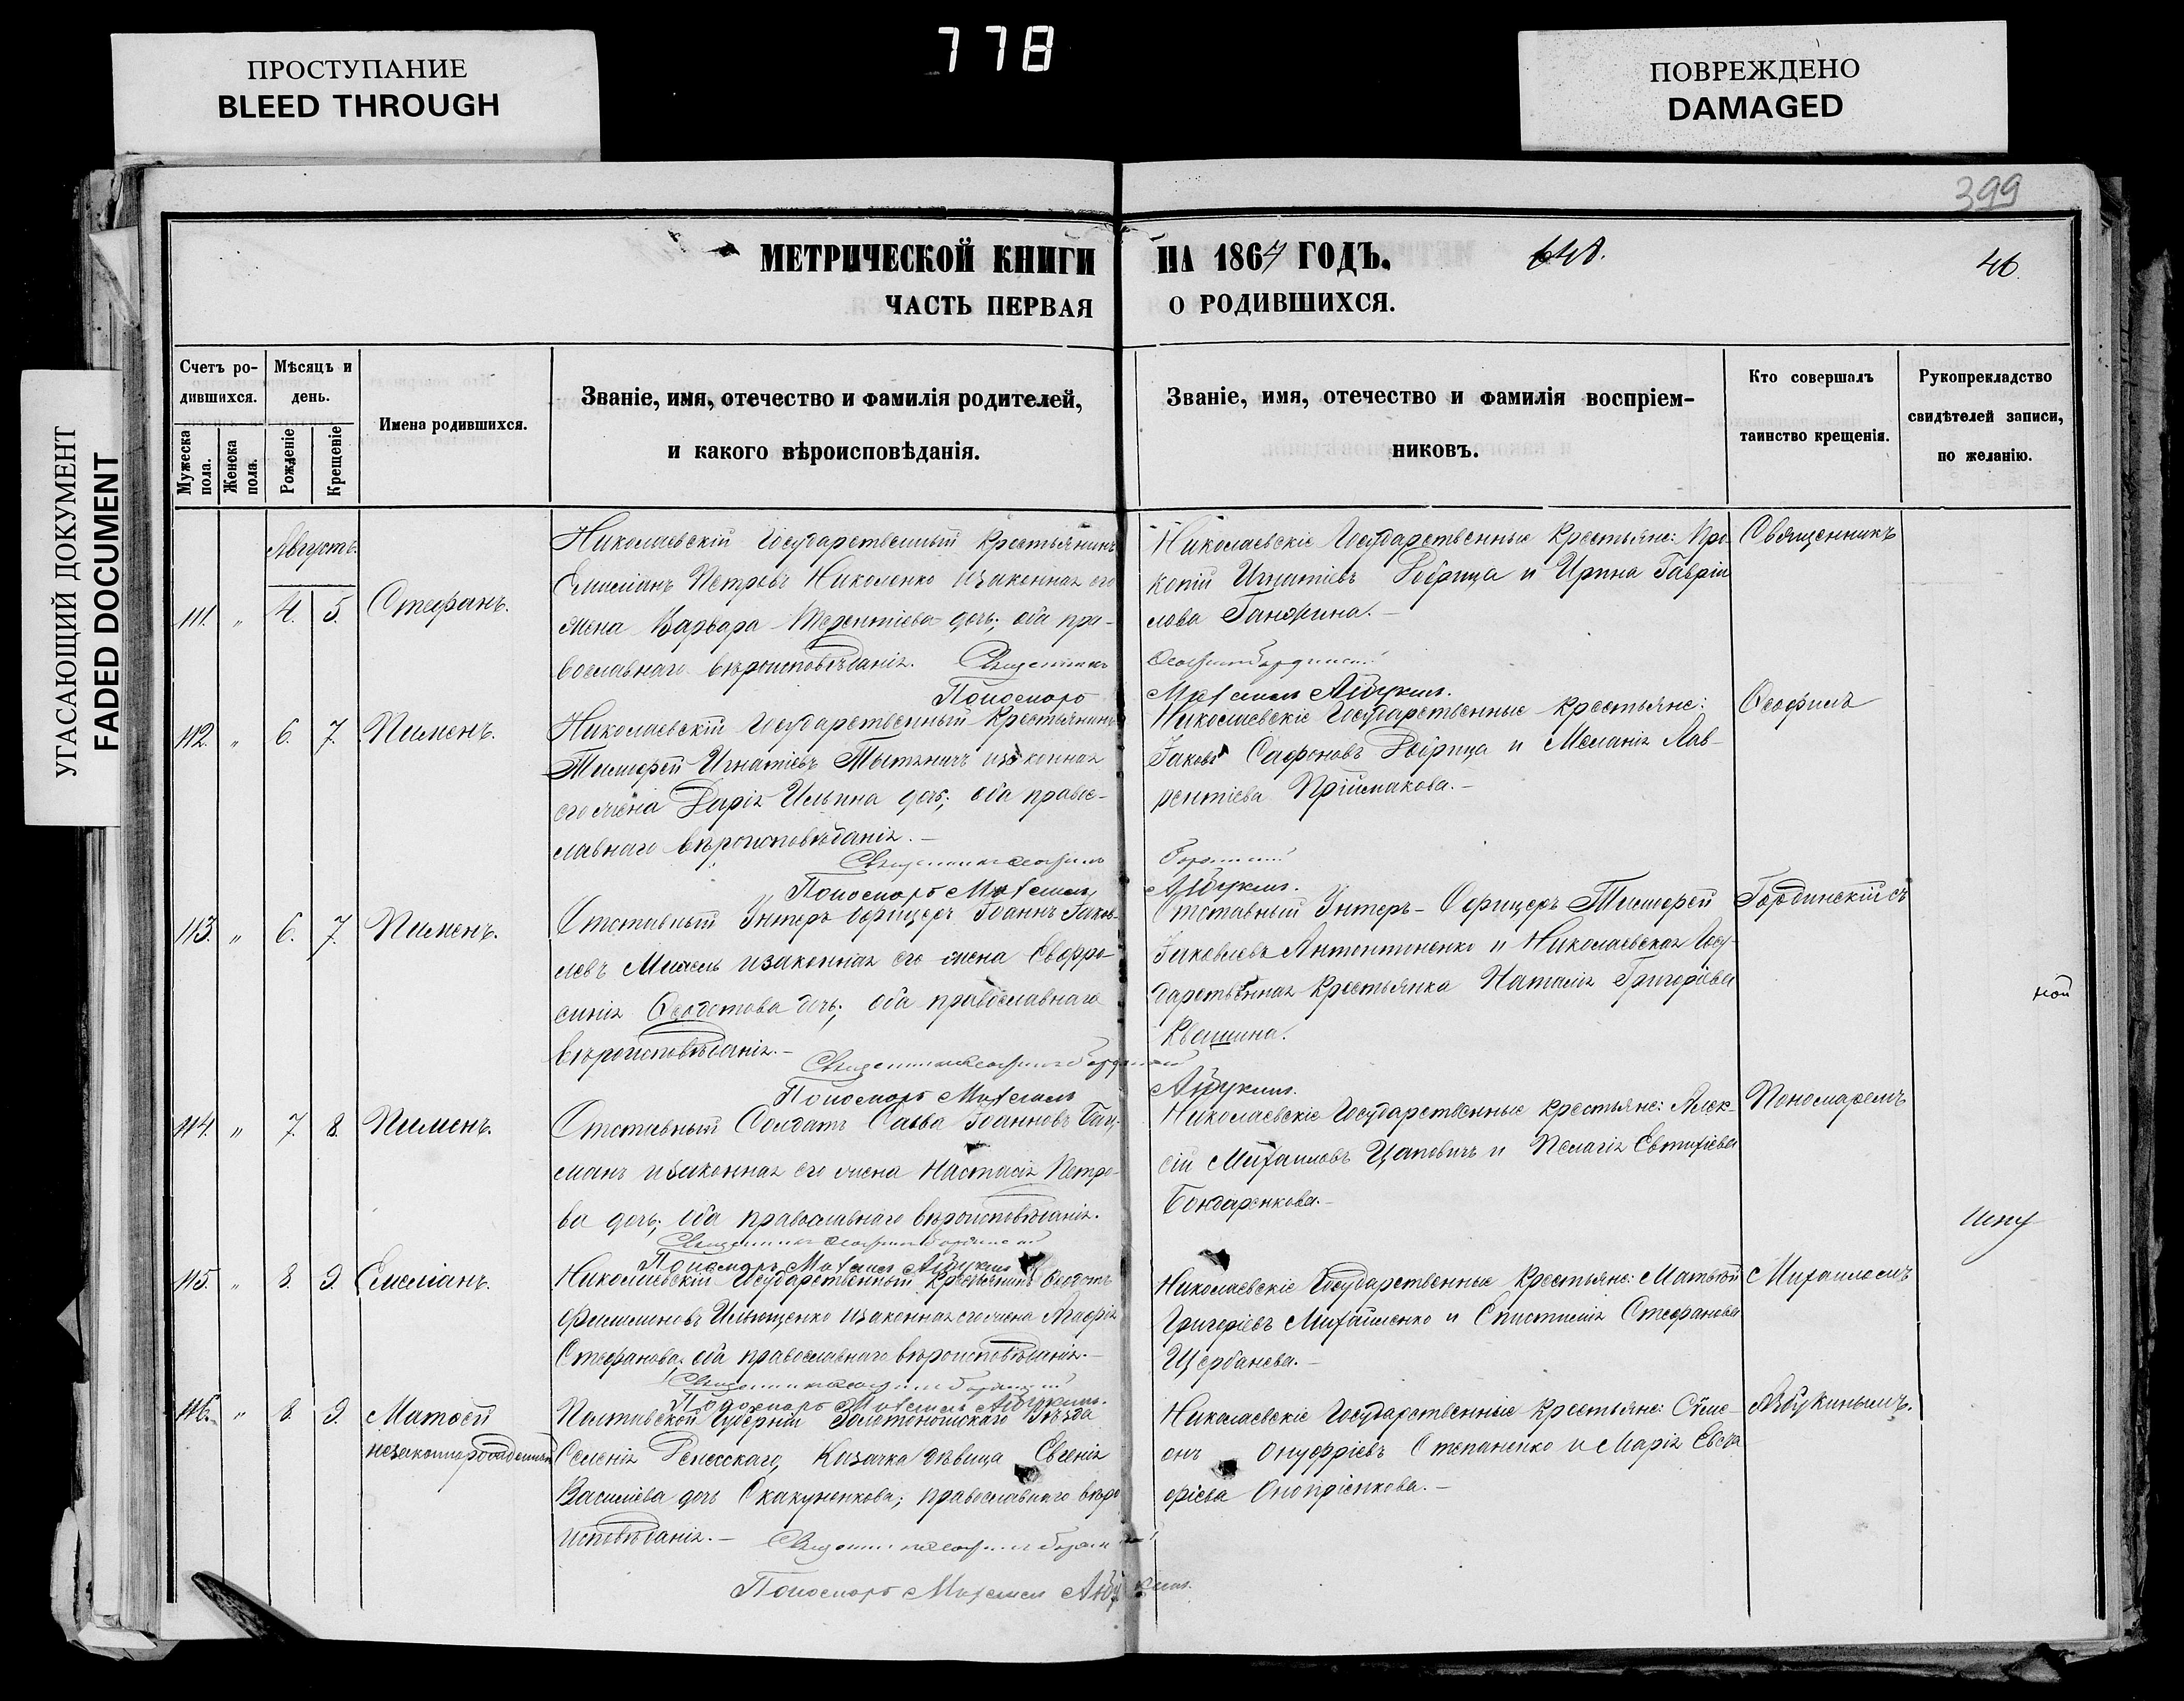 778
ПРОСТУПАНИЕ
BLEED THROUGH
ПОВРЕЖДЕНО
DAMAGED
УГАСАЮЩИЙ ДОКУМЕНТ
FADED DOCUMENT
399
МЕТРИЧЕСКОЙ КНИГИ НА 1867 ГОДЪ.
46
ЧАСТЬ ПЕРВАЯ О РОДИВШИХСЯ.
Счетъ ро-
дившихся.
Мужеска пола.
Женска пола.
Мѣсяцъ и
день.
Рожденіе
Крещеніе
Имена родившихся.
Званіе, имя, отечество и фамилія родителей,
и какого вѣроисповѣданія.
Званіе, имя, отечество и фамилія воспріем-
никовъ.
Кто совершалъ
таинство крещенія.
Рукоприкладство
свидѣтелей записи,
по желанію.
Августъ.
111. " 4. 5. Стефанъ.
Николаевскій Государственный крестьянинъ
Емиліанъ Петровъ Николенко изаконная его
жена Варвара Терентіева дочь; оба пра-
вославнаго вѣроисповѣданія. Священникъ
Пономарь
Николаевскіе Государственные крестьяне: Про-
копій Игнатіевъ Добрица и Ирина Гавріи-
лова Ганжина.
Михаилъ Азбукинъ.
Священникъ
112. " 6. 7. Пименъ.
Николаевскій Государственный крестьянинъ
Тимофей Игнатіевъ изаконная
его жена Дарія Ильина дочь; оба правос-
лавнаго вѣроисповѣданія.
Священникъ Ѳеофилъ
Пономарь Михаилъ
Николаевскіе Государственные крестьяне:
Іаковъ Сафоновъ Добрица и Меланія Лав-
рентіева Пріймакова.
Азбукинъ.
Ѳеофилъ
113. " 6. 7. Пименъ.
Отставный Унтеръ Офицеръ Іоаннъ Іаков-
левъ изаконная его жена Евфро-
синія Ѳеодотова дочь; оба православнаго
вѣроисповѣданія.
Священникъ Ѳеофилъ
Пономарь Михаилъ
Отставный Унтеръ-Офицеръ Тимофей
Іаковлевъ Антоненко и Николаевская Госу-
дарственная крестьянка Наталія Григоріева
Квашина.
Азбукинъ.
Гординскій съ
ной
114. " 7. 8. Пименъ.
Отставный Солдатъ Савва Іоанновъ Бац-
манъ изаконная его жена Настасія Петро-
ва дочь; оба православнаго вѣроисповѣданія.
Священникъ Ѳеофилъ
Пономарь Михаилъ Азбукинъ
Николаевскіе Государственные крестьяне: Алек-
сій Михаиловъ Цаповичъ и Пелагія Евтихіева
Бондаренкова.
Пономаремъ
115. " 8. 9. Емиліанъ.
Николаевскій Государственный крестьянинъ Ѳеодотъ
Филимоновъ Ильященко изаконная его жена Агафія
Стефанова; оба православнаго вѣроисповѣданія.
Священникъ Ѳеофилъ
Пономарь Михаилъ Азбукинъ.
Николаевскіе Государственные крестьяне: Матвѣй
Григоріевъ Михайленко и Епистимія Стефанова
Щербанева.
Михаиломъ
116. " 8. 9. Матѳей
незаконнорожденный
Полтавской Губерніи Золотоношскаго Уѣзда
Селенія Казачка дѣвица Евгенія
Василіева дочь Скакуненкова; православнаго вѣро-
исповѣданія. Священникъ Ѳеофилъ
Пономарь Михаилъ Азбукинъ.
Николаевскіе Государственные крестьяне: Симе-
онъ Онуфріевъ Степаненко и Марія
Онопріенкова.
Азбукинымъ.